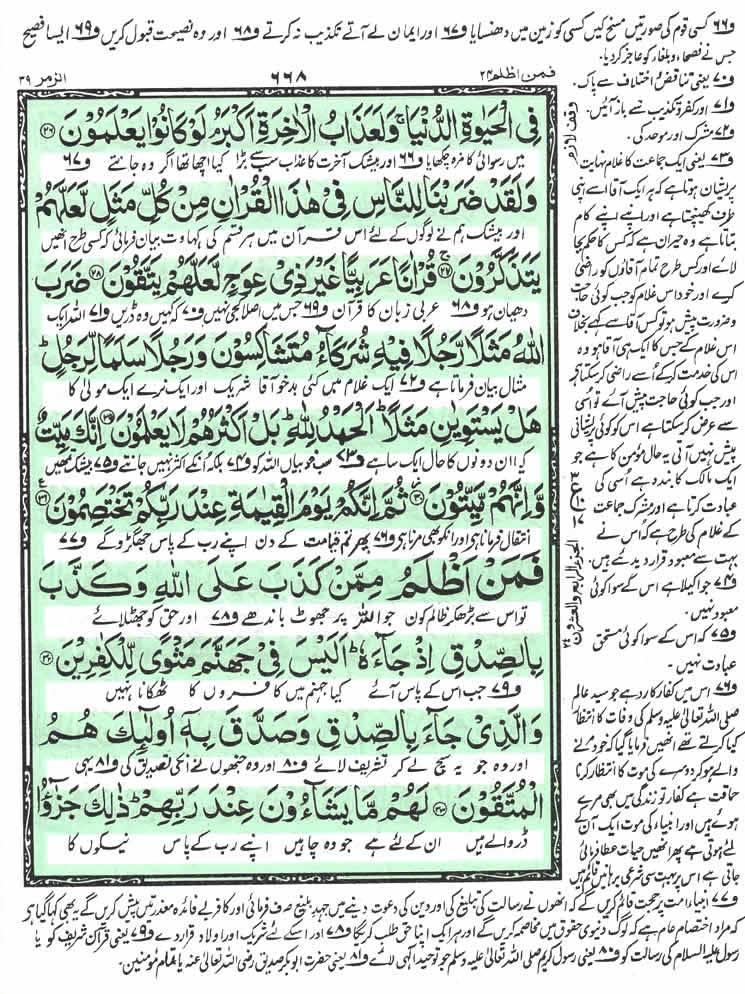 و۶۶ کسی قوم کی صورتیں مسخ کیں کسی کو زمین میں دھنسایا و۶۷ اور ایمان لے آتے تکذیب نہ کرتے و۶۸ اور وہ نصیحت قبول کریں و۶۹ ایسا فصیح
جس نے فصحاء و بلغاء کو عاجز کردیا۔
فمن اظلم ۲۴
۶۶۸
الزمر ۳۹
فِی الْحَیٰوةِ الدُّنْیَا ۚ وَلَعَذَابُ الْاٰخِرَةِ اَكْبَرُ ۘ لَوْ كَانُوْا یَعْلَمُوْنَ ﴿۲۶﴾
میں رسوائی کا مزہ چکھایا و۶۶ اور بیشک آخرت کا عذاب سب سے بڑا کیا اچھا تھا اگر وہ جانتے و۶۷
وَلَقَدْ ضَرَبْنَا لِلنَّاسِ فِیْ هٰذَا الْقُرْاٰنِ مِنْ كُلِّ مَثَلٍ لَّعَلَّهُمْ
اور بیشک ہم نے لوگوں کے لئے اس قرآن میں ہر قسم کی کہاوت بیان فرمائی کہ کسی طرح انھیں
یَتَذَكَّرُوْنَ ﴿۲۷﴾ قُرْاٰنًا عَرَبِیًّا غَیْرَ ذِیْ عِوَجٍ لَّعَلَّهُمْ یَتَّقُوْنَ ﴿۲۸﴾ ضَرَبَ
دھیان ہو و۶۸ عربی زبان کا قرآن و۶۹ جس میں اصلاً کجی نہیں و۷۰ کہ کہیں وہ ڈریں و۷۱ اللہ ایک
اللّٰهُ مَثَلًا رَّجُلًا فِیْهِ شُرَكَآءُ مُتَشٰكِسُوْنَ وَرَجُلًا سَلَمًا لِّرَجُلٍ ؕ
مثال بیان فرماتا ہے و۷۲ ایک غلام میں کئی بدخو آقا شریک اور ایک نرے ایک مولیٰ کا
هَلْ یَسْتَوِیٰنِ مَثَلًا ؕ اَلْحَمْدُ لِلّٰهِ ۚ بَلْ اَكْثَرُهُمْ لَا یَعْلَمُوْنَ ﴿۲۹﴾ اِنَّكَ مَیِّتٌ
کیا ان دونوں کا حال ایک سا ہے و۷۳ سب خوبیاں اللہ کو و۷۴ بلکہ ان کے اکثر نہیں جانتے و۷۵ بیشک تمھیں
وَّاِنَّهُمْ مَّیِّتُوْنَ ﴿۳۰﴾ ثُمَّ اِنَّكُمْ یَوْمَ الْقِیٰمَةِ عِنْدَ رَبِّكُمْ تَخْتَصِمُوْنَ ﴿۳۱﴾
انتقال فرمانا ہے اور انکو بھی مرنا ہے و۷۶ پھر تم قیامت کے دن اپنے رب کے پاس جھگڑو گے و۷۷
فَمَنْ اَظْلَمُ مِمَّنْ كَذَبَ عَلَی اللّٰهِ وَكَذَّبَ
تو اس سے بڑھکر ظالم کون جو اللہ پر جھوٹ باندھے و۷۸ اور حق کو جھٹلائے
بِالصِّدْقِ اِذْ جَآءَهٗ ؕ اَلَیْسَ فِیْ جَهَنَّمَ مَثْوًی لِّلْكٰفِرِیْنَ ﴿۳۲﴾
و۷۹ جب اس کے پاس آئے کیا جہنم میں کافروں کا ٹھکانا نہیں
وَالَّذِیْ جَآءَ بِالصِّدْقِ وَصَدَّقَ بِهٖۤ اُولٰٓىِٕكَ هُمُ
اور وہ جو یہ سچ لے کر تشریف لائے و۸۰ اور وہ جنھوں نے انکی تصدیق کی و۸۱ یہی
الْمُتَّقُوْنَ ﴿۳۳﴾ لَهُمْ مَّا یَشَآءُوْنَ عِنْدَ رَبِّهِمْ ؕ ذٰلِكَ جَزٰٓؤُا
ڈر والے ہیں ان کے لئے ہے جو وہ چاہیں اپنے رب کے پاس نیکوں کا
وقف لازم
الجزء الرابع والعشرون ۲۴
و۷۰ یعنی تناقض و اختلاف سے پاک۔
و۷۱ اور کفر و تکذیب سے باز آئیں۔
و۷۲ مشرک اور موحد کی۔
و۷۳ یعنی ایک جماعت کا غلام نہایت
پریشان ہوتا ہے کہ ہر ایک آقا اسے اپنی
طرف کھینچتا ہے اور اپنے اپنے کام
بتاتا ہے وہ حیران ہے کہ کس کا حکم بجا
لائے اور کس طرح تمام آقاؤں کو راضی
کرے اور خود اس غلام کو جب کوئی حاجت
و ضرورت پیش ہو تو کس آقا سے کہے بخلاف
اس غلام کے جس کا ایک ہی آقا ہو وہ
اس کی خدمت کرکے اسے راضی کرسکتا ہے
اور جب کوئی حاجت پیش آئے تو اسی
سے عرض کرسکتا ہے اس کو کوئی پریشانی
پیش نہیں آتی یہ حال مؤمن کا ہے جو
ایک مالک کا بندہ ہے اسی کی
عبادت کرتا ہے اور مشرک جماعت
کے غلام کی طرح ہے کہ اس نے
بہت سے معبود قرار دیدئیے ہیں۔
و۷۴ جو اکیلا ہے اس کے سوا کوئی
معبود نہیں۔
و۷۵ کہ اس کے سوا کوئی مستحق
عبادت نہیں۔
و۷۶ اس میں کفار کا رد ہے جو سید عالم
صلی اللہ تعالیٰ علیہ وسلم کی وفات کا انتظار
کیا کرتے تھے انھیں فرمایا گیا کہ خود مرنے
والے ہو کر دوسرے کی موت کا انتظار کرنا
حماقت ہے کفار تو زندگی میں بھی مرے
ہوئے ہیں اور انبیاء کی موت ایک آن کے
لئے ہوتی ہے پھر انھیں حیات عطا فرمائی
جاتی ہے اس پر بہت سی شرعی برہانیں قائم ہیں
و۷۷ انبیاء امت پر حجت قائم کریں گے کہ انھوں نے رسالت کی تبلیغ کی اور دین کی دعوت دینے میں جہد بلیغ صرف فرمائی اور کافر بے فائدہ معذرتیں پیش کریں گے یہ بھی کہا گیا ہے
کہ مراد اختصام عام ہے کہ لوگ دنیوی حقوق میں مخاصمہ کریں گے اور ہر ایک اپنا حق طلب کریگا و۷۸ اور اسکے لئے شریک اور اولاد قرار دے و۷۹ یعنی قرآن شریف کو یا
رسول علیہ السلام کی رسالت کو و۸۰ یعنی رسول کریم صلی اللہ تعالیٰ علیہ وسلم جو توحید الٰہی لائے و۸۱ یعنی حضرت ابوبکر صدیق رضی اللہ تعالیٰ عنہ یا تمام مؤمنین۔